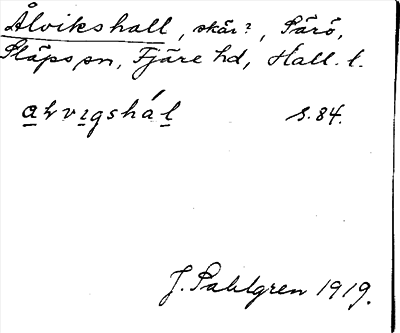 Ålvikshall, skär?, Särö,
Släps sn, Fjäre hd, Hall. l.
alvigshál s. 84.
J. Sahlgren 1919.